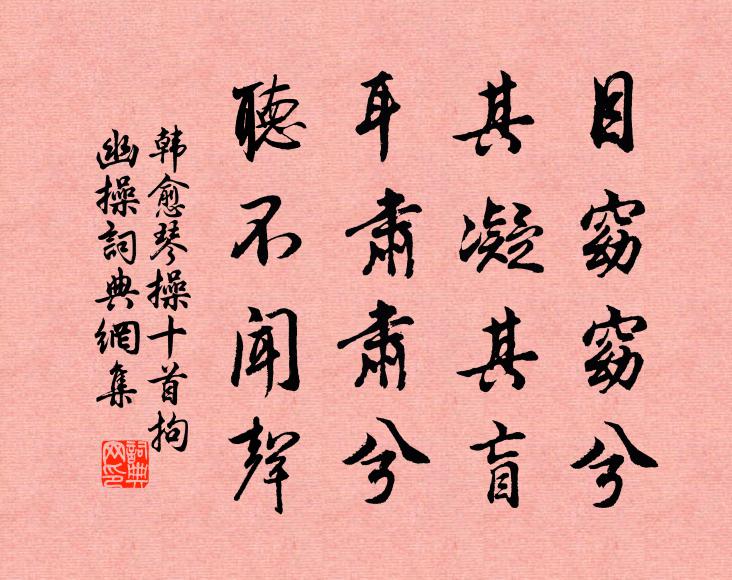 目窈窈兮
其凝其盲
耳肃肃兮
聽不闻聲
韩愈琴操十首拘
幽操詞典網集
詞典
网印